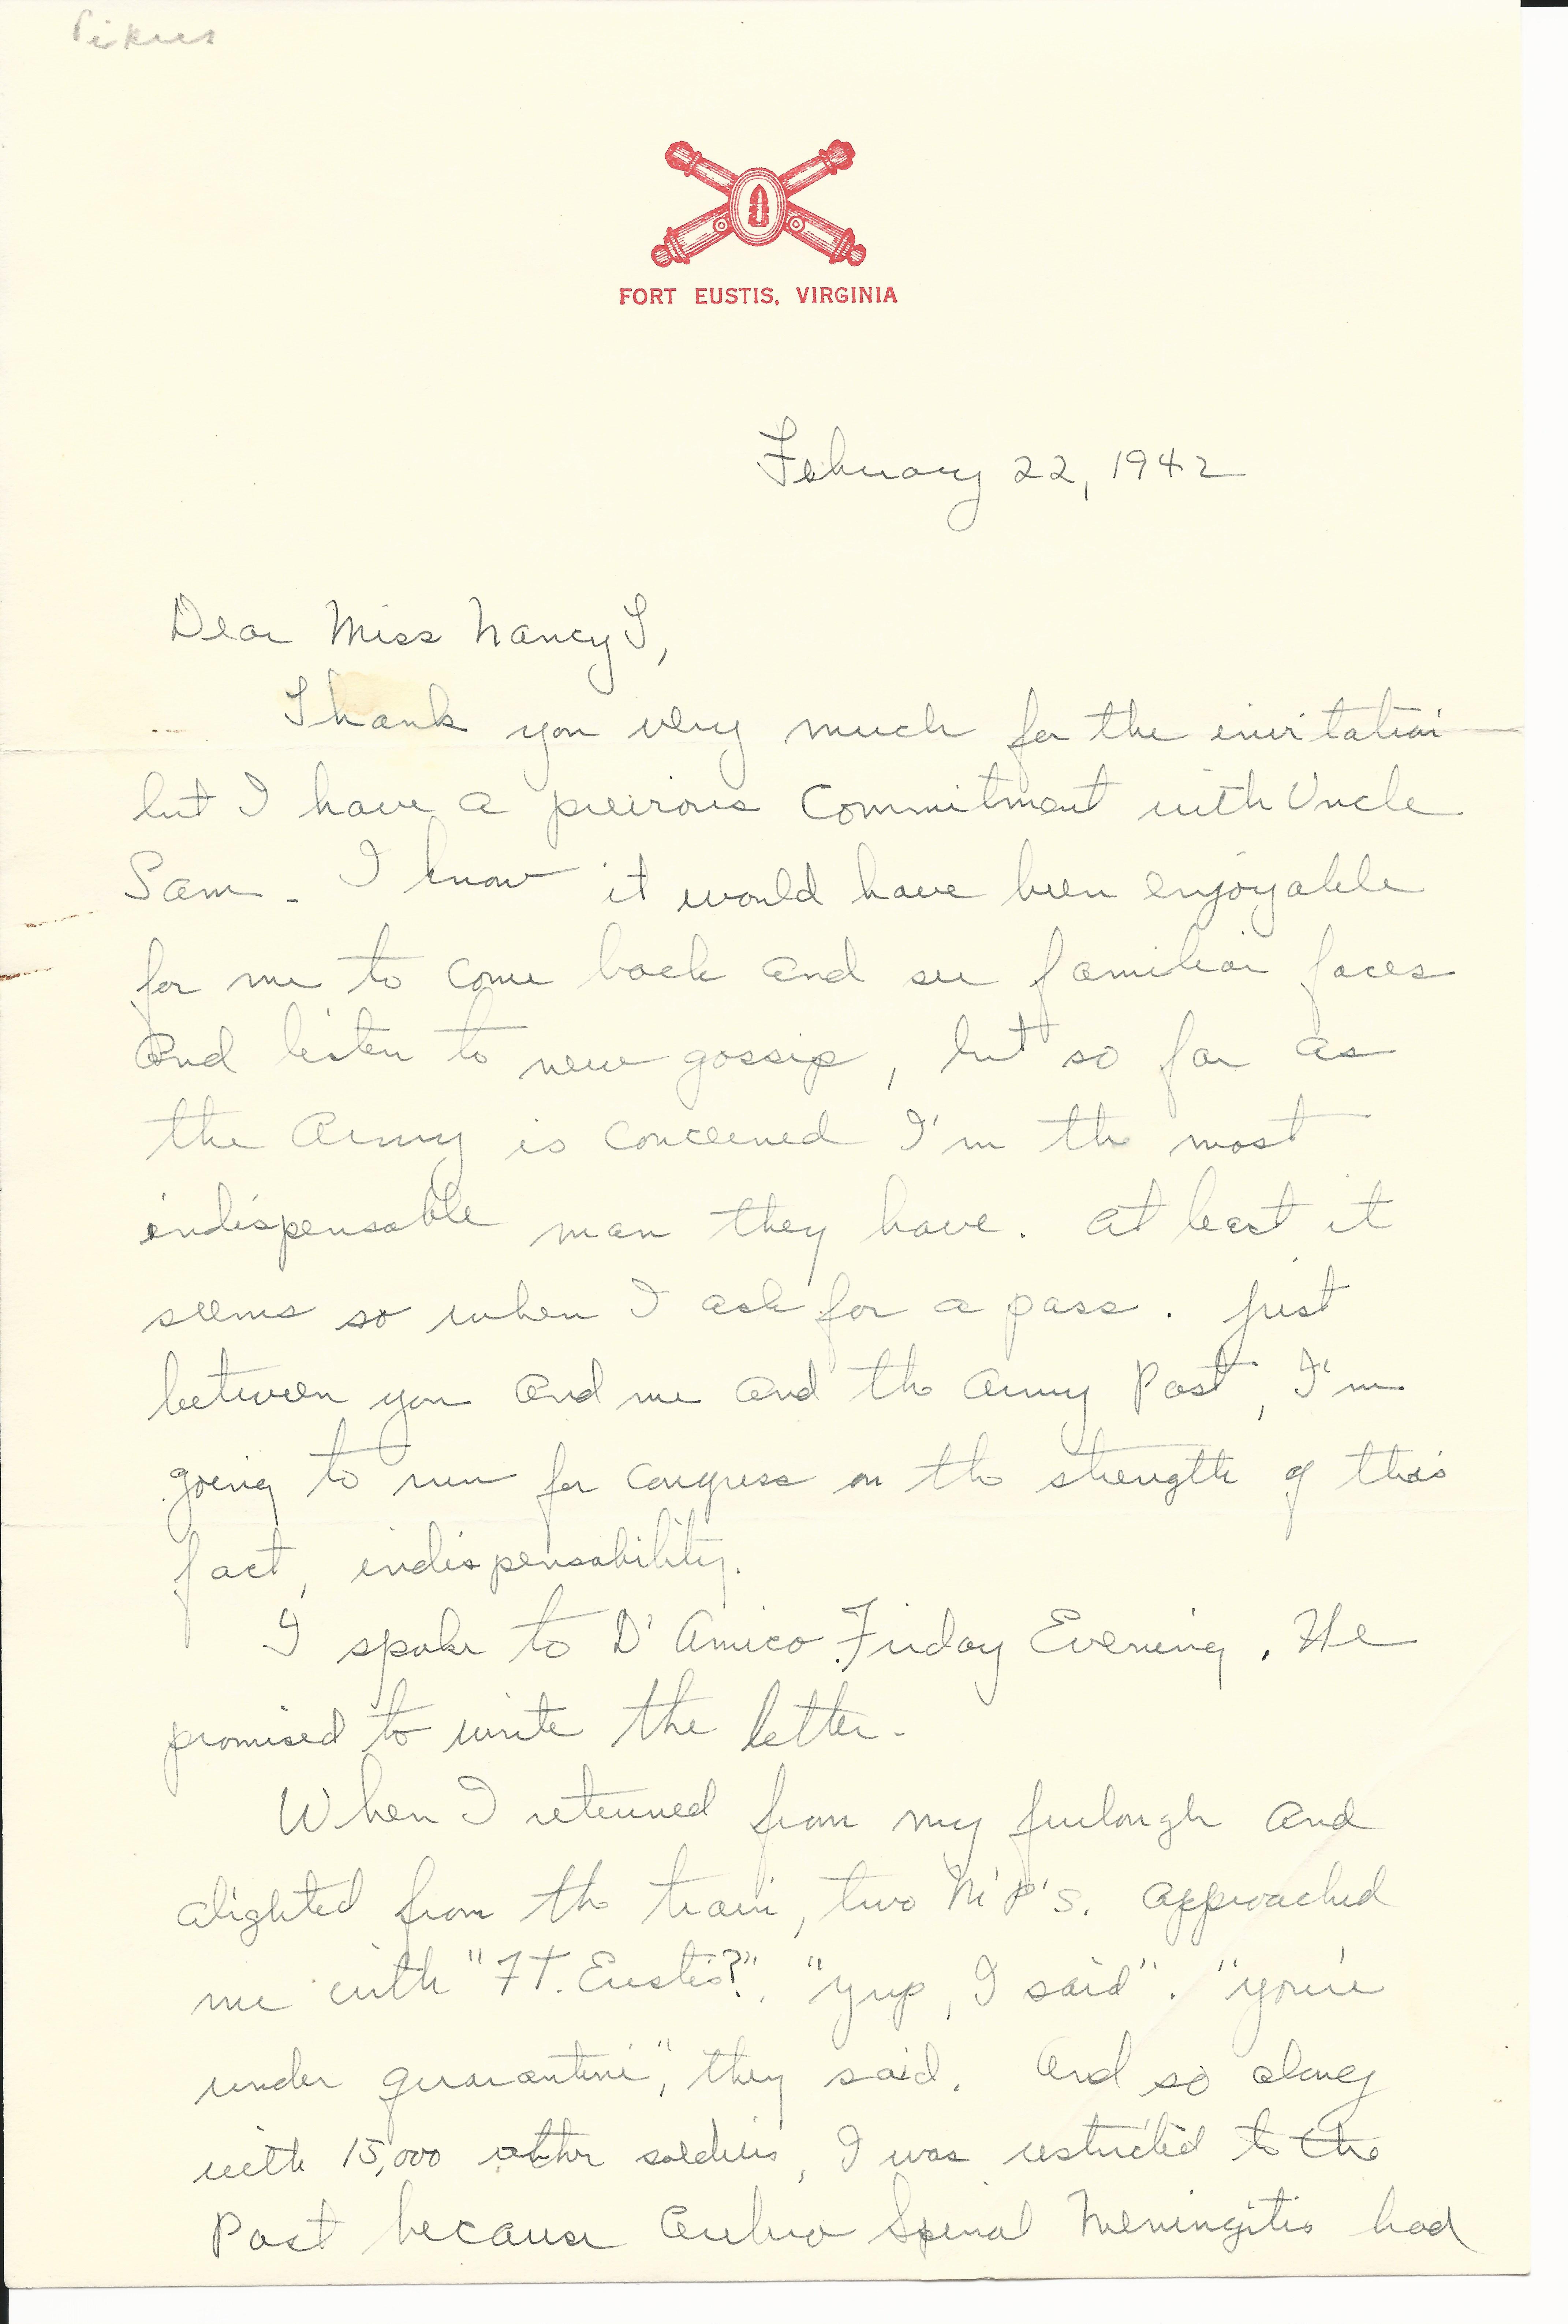 Pikus
FORT EUSTIS, VIRGINIA
February 22, 1942
Dear Miss Nancy T,
Thank you very much for the invitation
but I have a previous commitment with Uncle
Sam. I know it would have been enjoyable
for me to come back and see familiar faces
and listen to new gossip, but so far as
the Army is concerned I'm the most
indispensable man they have. At least it
seems so when I ask for a pass. Just
between you and me and the Army Post, I'm
going to run for Congress on the strength of this
fact, indispensability.
I spoke to D'Amico Friday Evening. He
promised to write the letter.
When I returned from my furlough and
alighted from the train, two M'P's. approached
me with "FT. Eustis?". "Yup, I said". "You're
under quarantine", they said. And so along
with 15,000 other soldiers, I was restricted to the
Post because Cerebro Spinal Meningitis had